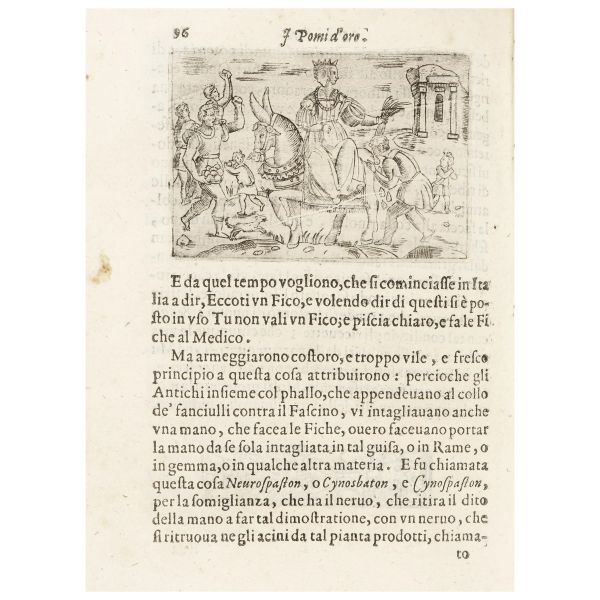 96 I Pomi d'oro.
E da quel tempo vogliono, che si cominciasse in Ita
lia a dir, Eccoti vn Fico, e volendo dir di questi si è po-
sto in vso Tu non vali vn Fico; e piscia chiaro, e fa le Fi
che al Medico.
Ma armeggiarono costoro, e troppo vile, e fresco
principio a questa cosa attribuirono: percioche gli
Antichi insieme col phallo, che appendeuano al collo
de' fanciulli contra il Fascino, vi intagliauano anche
vna mano, che facea le Fiche, ouero faceuano portar
la mano da se sola intagliata in tal guisa, o in Rame, o
in gemma, o in qualche altra materia. E fu chiamata
questa cosa Neurospaston, o Cynosbaton, e Cynospaston,
per la somiglianza, che ha il neruo, che ritira il dito
della mano a far tal dimostratione, con vn neruo, che
si ritroua ne gli acini da tal pianta prodotti, chiama-
to